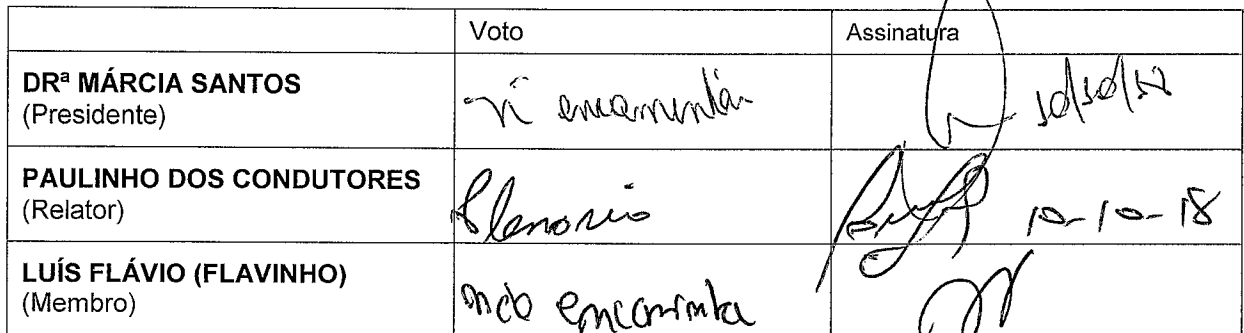 Voto Assinatura
DRª MÁRCIA SANTOS
(Presidente)
PAULINHO DOS CONDUTORES
(Relator) Plenario 10-10-18
LUÍS FLÁVIO (FLAVINHO)
(Membro) encaminha